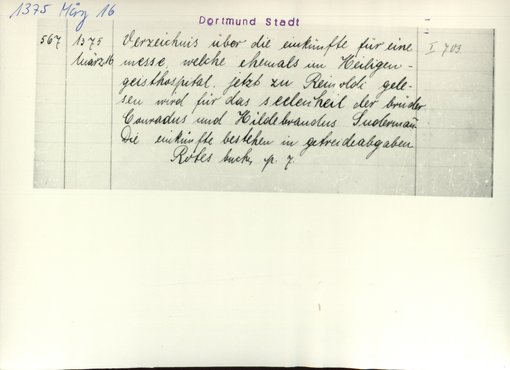 1375 März 16
Dortmund Stadt
567 1375 Verzeichnis über die einkünfte für eine I 703
März 16 messe, welche ehemals im Heiligen-
geisthospital, jetzt zu Reinoldi gele-
sen wird für das seelenheil der brüder
Conradus und Hildebrandus Suderman
Die einkünfte bestehen in getreideabgaben
Rotes buch, p. 7.